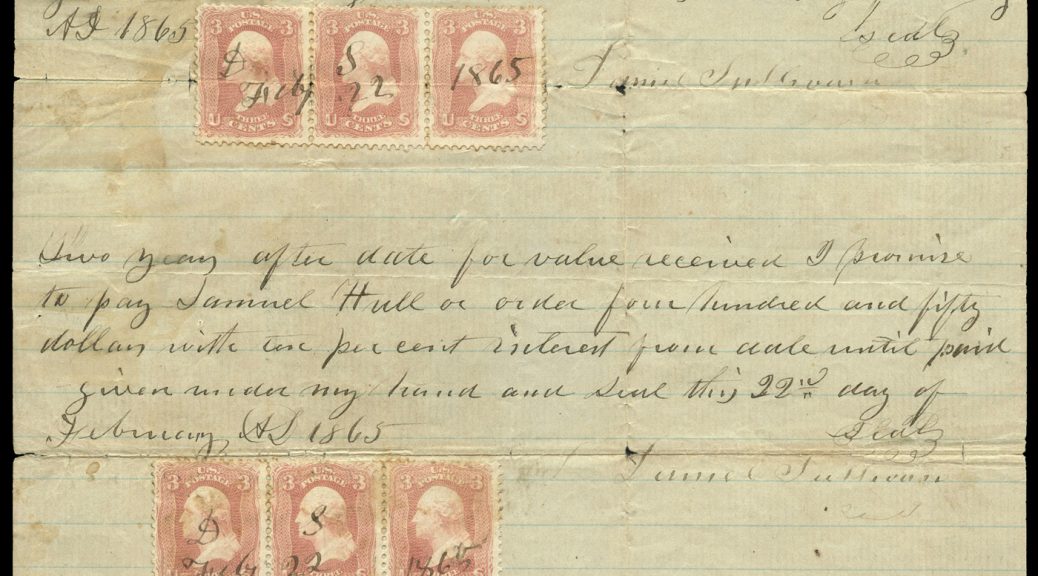 AD 1865
Seal
3 U.S. POSTAGE 3 3 U.S. POSTAGE 3 3 U.S. POSTAGE 3
D S 1865
Feby 22
U THREE CENTS S U THREE CENTS S U THREE CENTS S
Daniel Sullivan
Two years after date for value received I promise
to pay Samuel Hull or order four hundred and fifty
dollars with ten per cent interest from date until paid
given under my hand and seal this 22nd day of
February AD 1865
Seal
Daniel Sullivan
3 U.S. POSTAGE 3 3 U.S. POSTAGE 3 3 U.S. POSTAGE 3
D S
Feby 22 1865